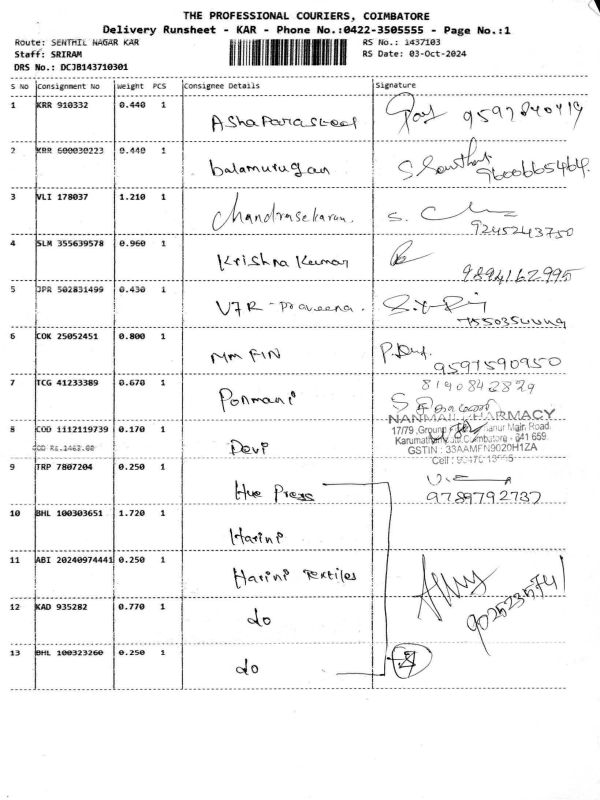 THE PROFESSIONAL COURIERS, COIMBATORE
Delivery Runsheet - KAR - Phone No.:0422-3505555 - Page No.:1
Route: SENTHIL NAGAR KAR
RS No.: 1437103
Staff: SRIRAM
RS Date: 03-Oct-2024
DRS No.: DCJB143710301
S No Consignment No Weight PCS Consignee Details Signature
1 KRR 910332 0.440 1 Ashapurasteel
2 KRR 600030223 0.440 1 balamurugan 9600665464.
3 VLI 178037 1.210 1 Chandrasekaran. S.
9245243750
4 SLM 355639578 0.960 1 Krishna Kumar
9894162995
5 JPR 502831499 0.430 1 VJR - praveena.
6 COK 25052451 0.800 1 MM FIN
9597590950
7 TCG 41233389 0.670 1 Ponmani 8190842829
NANMAI PHARMACY
17/79, Ground Main Road.
Coimbatore - 641 659.
GSTIN : 33AAMFN9020H1ZA
Cell :
8 COD 1112119739 0.170 1 Devi
COD Rs.1463.00
9 TRP 7807204 0.250 1 Hue Press 9789792737
10 BHL 100303651 1.720 1 Harini
11 ABI 20240974441 0.250 1 Harini Textiles
12 KAD 935282 0.770 1 do
13 BHL 100323260 0.250 1 do